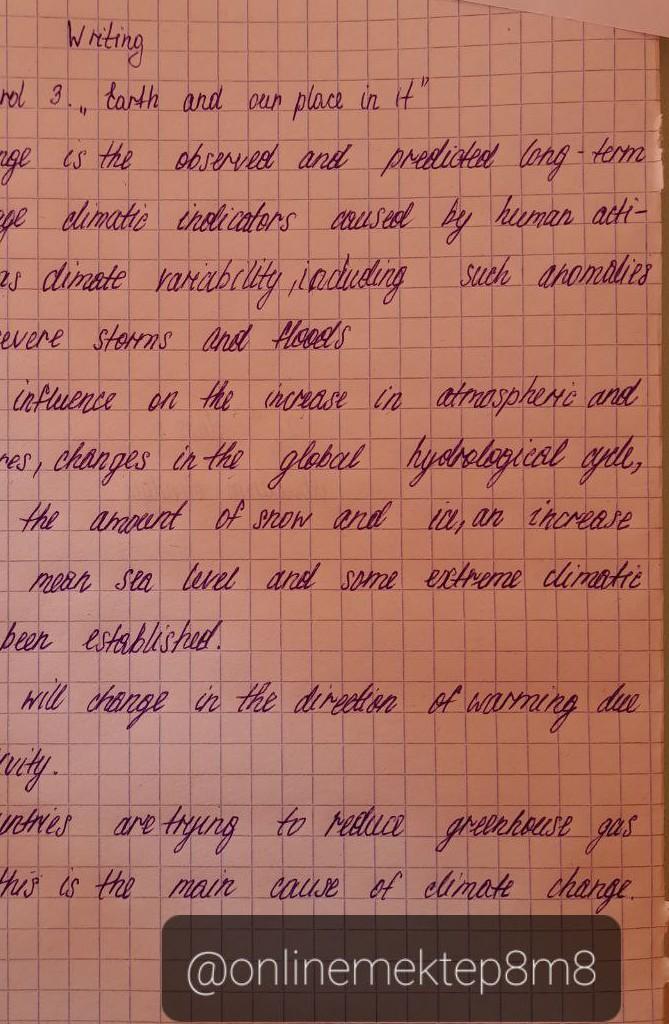 Writing
3. „ Earth and our place in it"
is the observed and predicted long-term
climatic indicators caused by human acti-
as climate variability, including such anomalies
severe storms and floods
influence on the increase in atmospheric and
res, changes in the global hydrological cycle,
the amount of snow and ice, an increase
mean sea level and some extreme climatic
been established.
will change in the direction of warming due
vity.
untries are trying to reduce greenhouse gas
this is the main cause of climate change.
@onlinemektep8m8